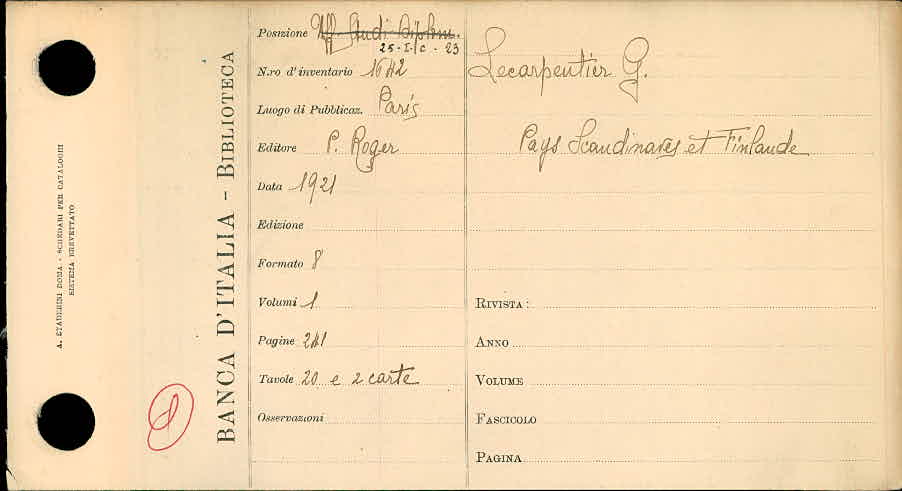 A. STADERINI ROMA - SCHEDARI PER CATALOGHI
SISTEMA BREVETTATO
BANCA D'ITALIA - BIBLIOTECA
Posizione Uff. Studi-Diplom.
25-I-/C - 23
N.ro d'inventario 1642
Luogo di Pubblicaz. Paris
Editore P. Roger
Data 1921
Edizione
Formato 8
Volumi 1
Pagine 241
Tavole 20 e 2 carte
Osservazioni
Lecarpentier G.
Pays Scandinaves et Finlande
RIVISTA:
ANNO
VOLUME
FASCICOLO
PAGINA